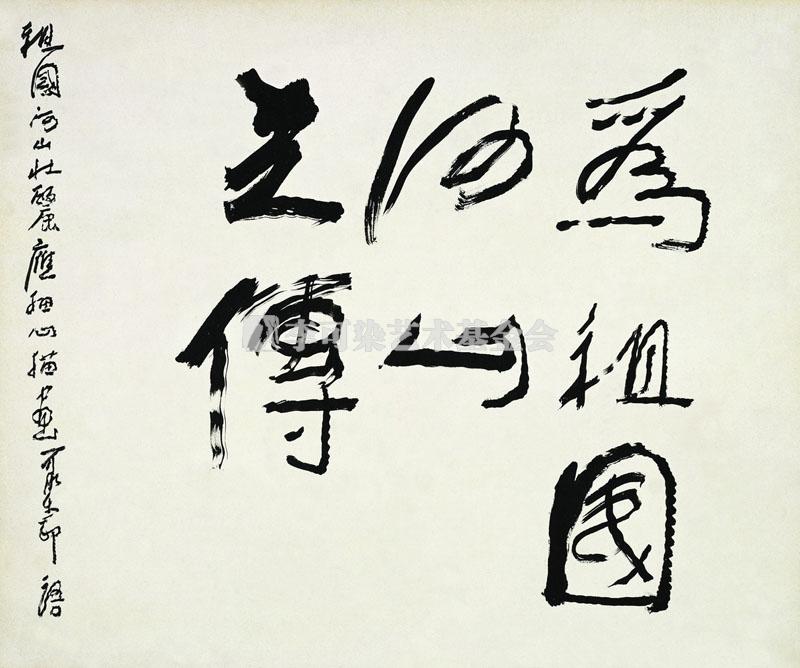 爲祖國
河山
立傳
祖國河山壯麗應細心描畫
李可染艺术基金会